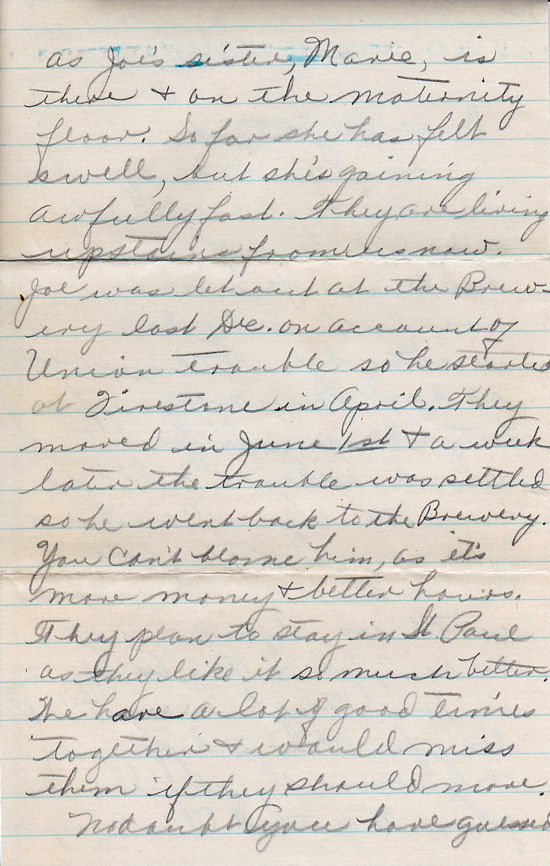 as Joe's sister, Marie, is
there + on the maternity
floor. So far she has felt
swell, but she's gaining
awfully fast. They are living
upstairs from us now.
Joe was let out at the Brew-
ery last Dec. on account of
Union trouble so he started
at Firestone in April. They
moved in June 1st + a week
later the trouble was settled
so he went back to the Brewery.
You can't blame him, as it's
more money + better hours.
They plan to stay in St Paul
as they like it so much better.
We have a lot of good times
together + would miss
them if they should move.
No doubt you have guessed